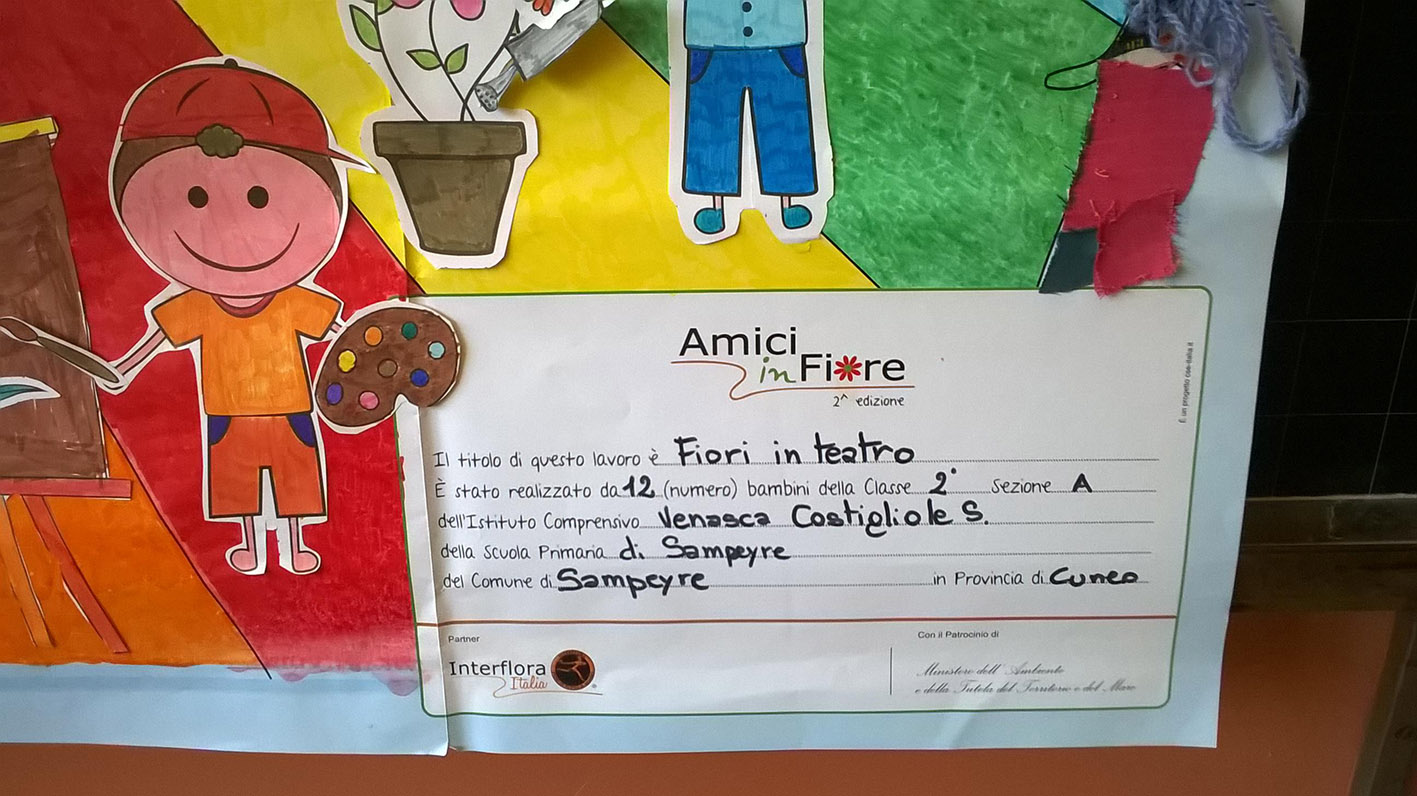 Amici
in Fiore
2^ edizione
È un progetto cse-italia.it
Il titolo di questo lavoro è Fiori in teatro
È stato realizzato da 12 (numero) bambini della Classe 2° Sezione A
dell'Istituto Comprensivo Venasca Costigliole S.
della Scuola Primaria di Sampeyre
del Comune di Sampeyre in Provincia di Cuneo
Partner
Con il Patrocinio di
Interflora
Italia
Ministero dell'Ambiente
e della Tutela del Territorio e del Mare